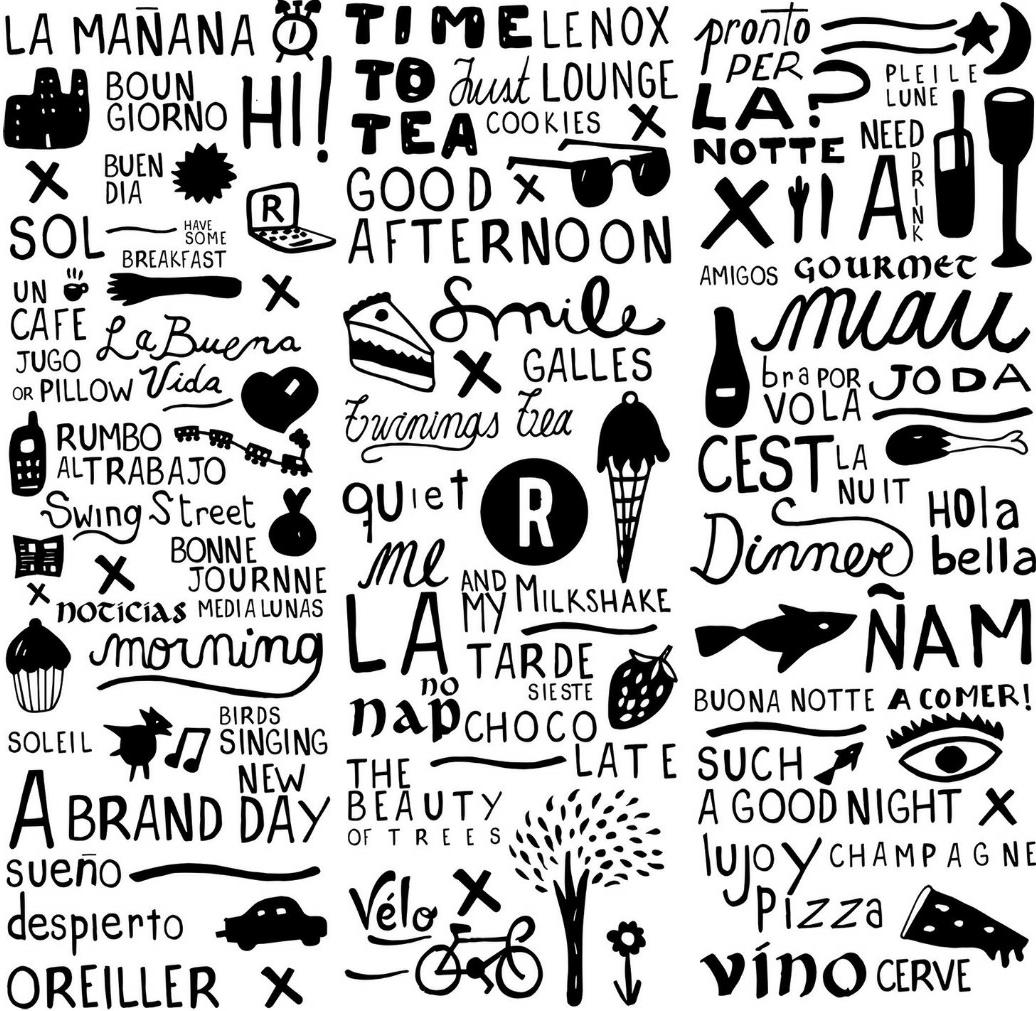 LA MAÑANA
BOUN
GIORNO
HI!
BUEN
DIA
R
SOL
HAVE
SOME
BREAKFAST
UN
CAFE
JUGO
La Buena
Vida
OR PILLOW
RUMBO
AL TRABAJO
Swing Street
BONNE
JOURNNE
noticias MEDIALUNAS
morning
SOLEIL
BIRDS
SINGING
NEW
A BRAND DAY
sueño
despierto
OREILLER
TIME
TO
TEA
LENOX
Just LOUNGE
COOKIES
GOOD
AFTERNOON
Smile
GALLES
Turnings Tea
quiet
R
me
AND
MY MILKSHAKE
LA TARDE
no
SIESTE
nap CHOCO
LATE
THE
BEAUTY
OF TREES
Vélo
pronto
PER
LA?
NOTTE
PLEILE
LUNE
NEED
A
DRINK
AMIGOS GOURMET
miau
bra POR JODA
VOLA
CEST LA
NUIT
Dinner
HOla
bella
ÑAM
BUONA NOTTE A COMER!
SUCH
A GOOD NIGHT
lujo y CHAMPAGNE
pizza
víno CERVE